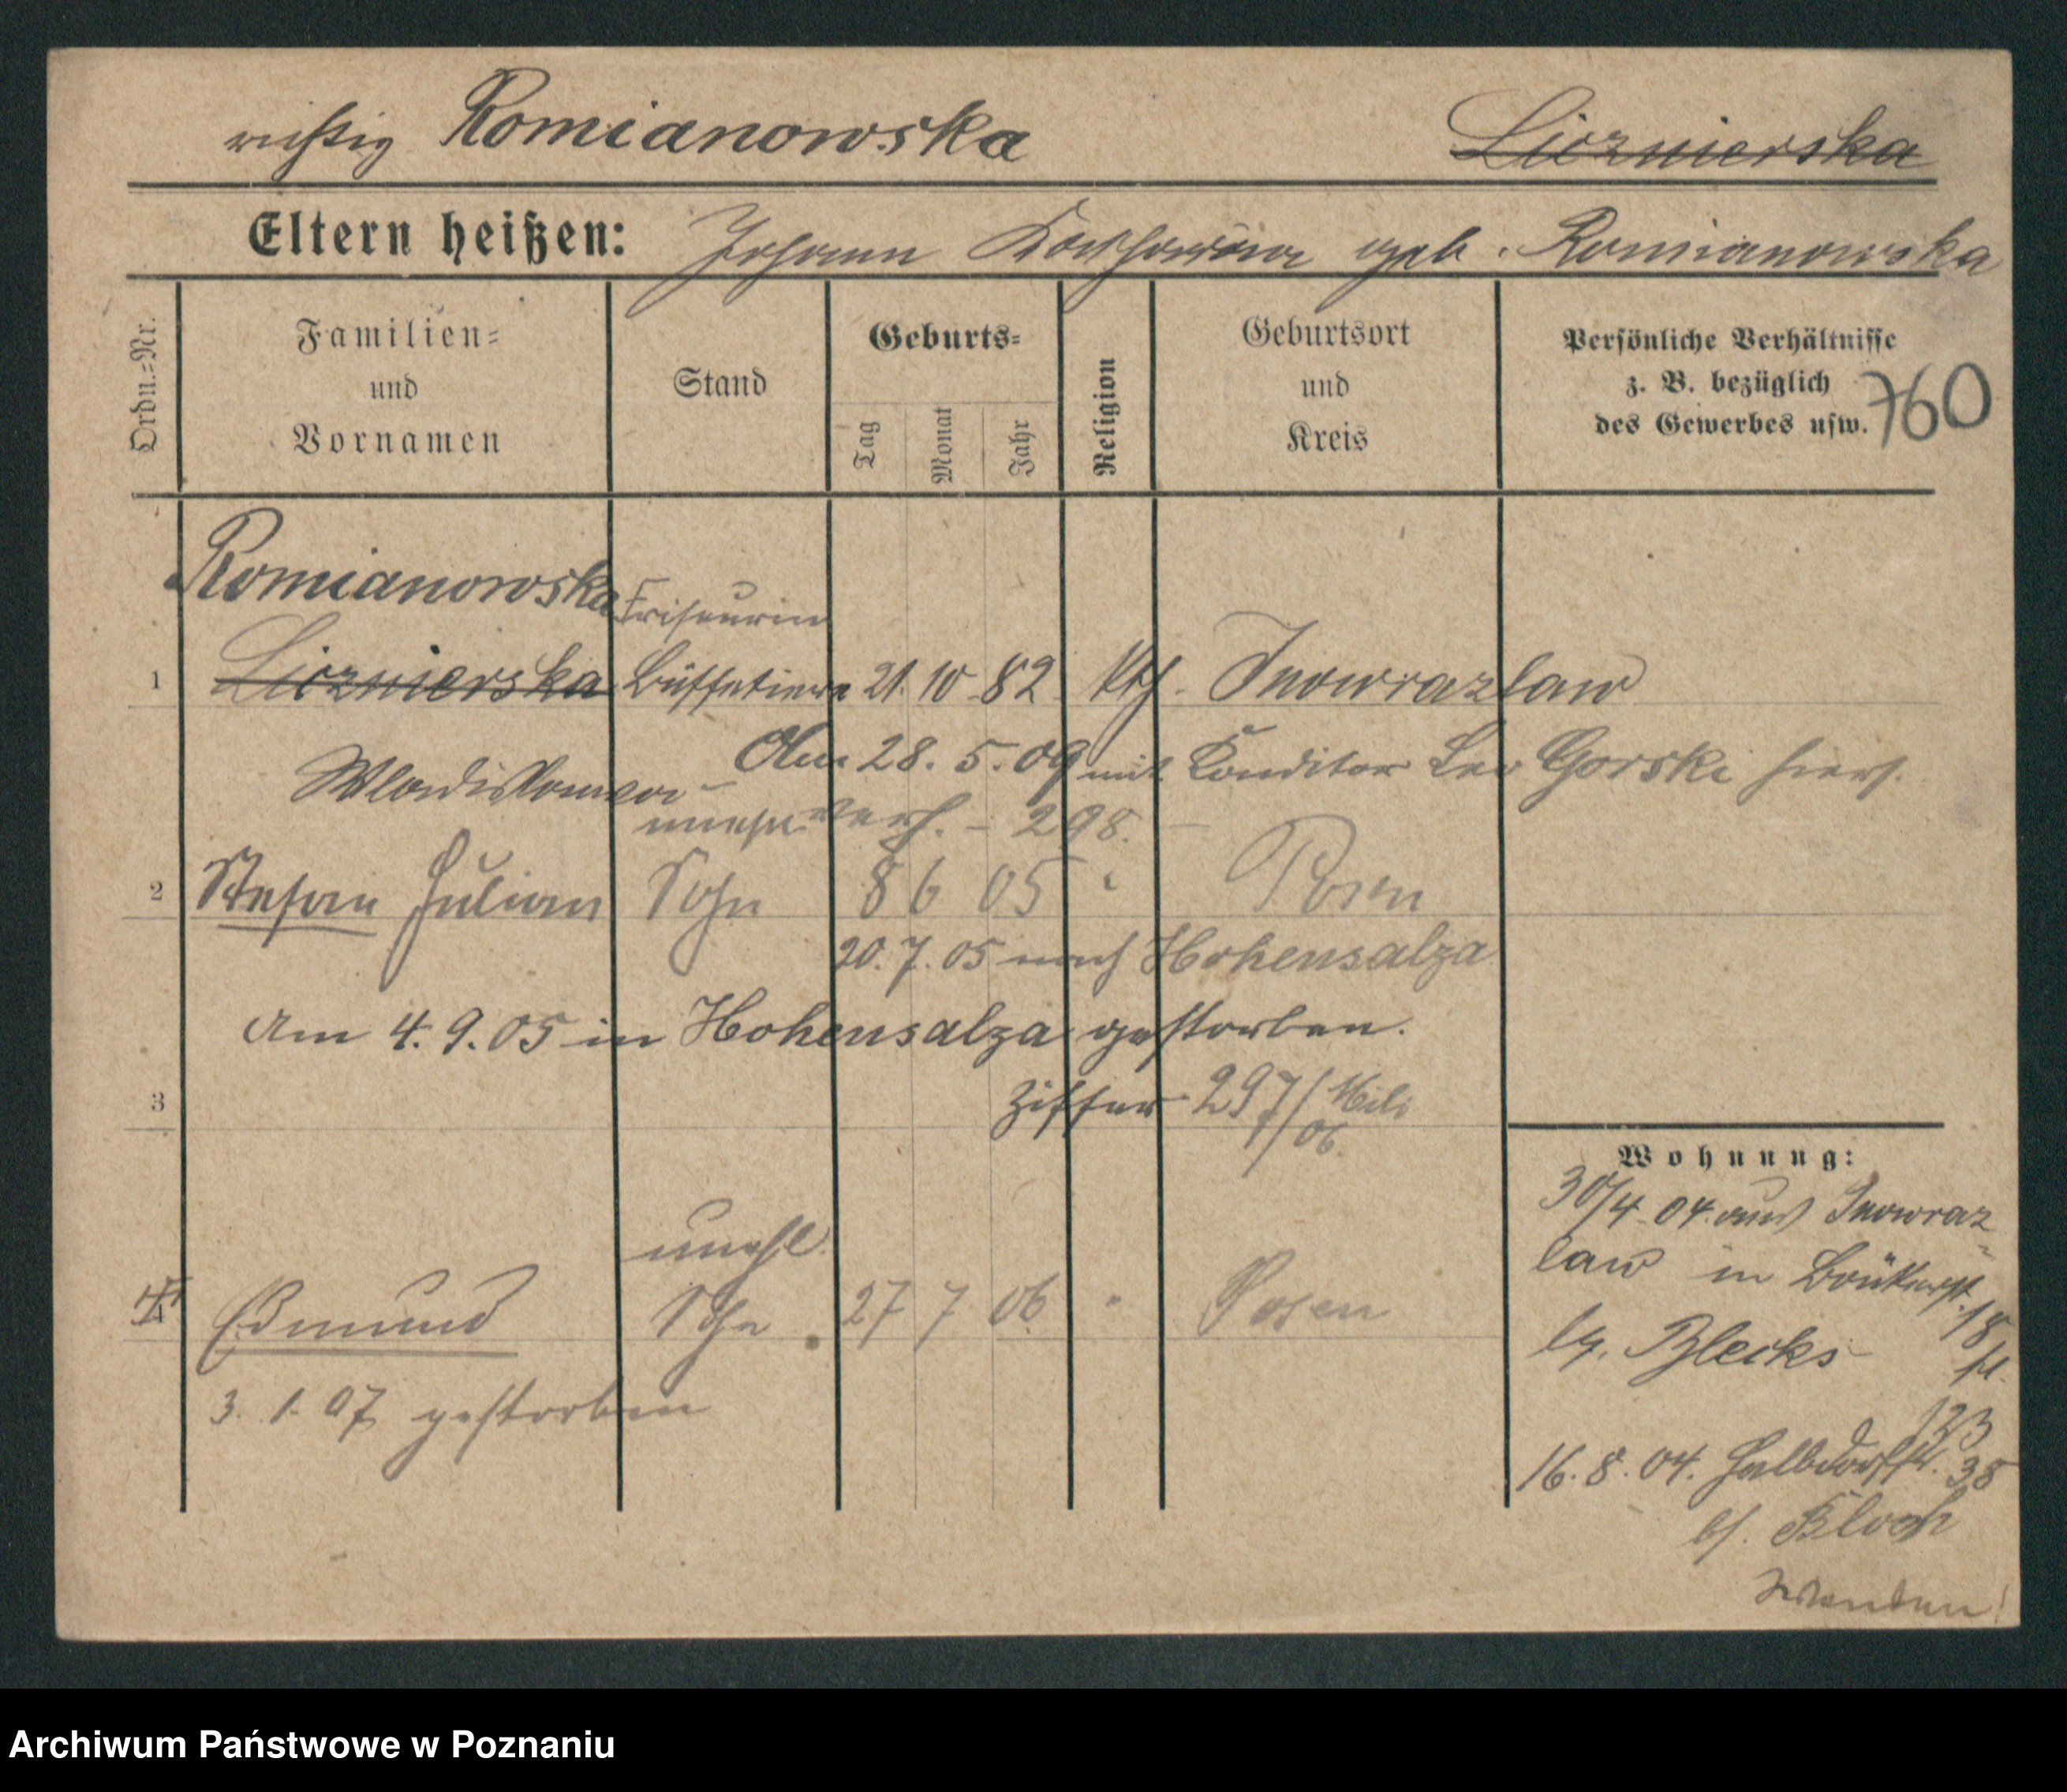 richtig Romianowska Licznierska
Eltern heißen: Johann geb. Romianowska
Ordn.-Nr.
Familien-
und
Vornamen
Stand
Geburts-
Tag
Monat
Jahr
Religion
Geburtsort
und
Kreis
Persönliche Verhältnisse
z. B. bezüglich
des Gewerbes usw.
760
Romianowska Friseurin
1 Licznierska Büffetiere 21. 10 82 kth. Inowrazlaw
Wladislawa
Am 28. 5. 09 mit Konditor Leo Gorski hier
verh. - 298.
2 Stefan Julian Sohn 8 6 05 " Posen
20. 7. 05 nach Hohensalza
Am 4. 9. 05 in Hohensalza gestorben.
3 Ziffer 297/Mili
06.
unehl.
4 Edmund Sohn 27 7 06 " Posen
3. 1. 07 gestorben
Wohnung:
30/4. 04. aus Inowraz-
law in 18
Blecks
123
16. 8. 04. Halbdorfstr. 38
b/. Bloch
Wenden!
Archiwum Państwowe w Poznaniu